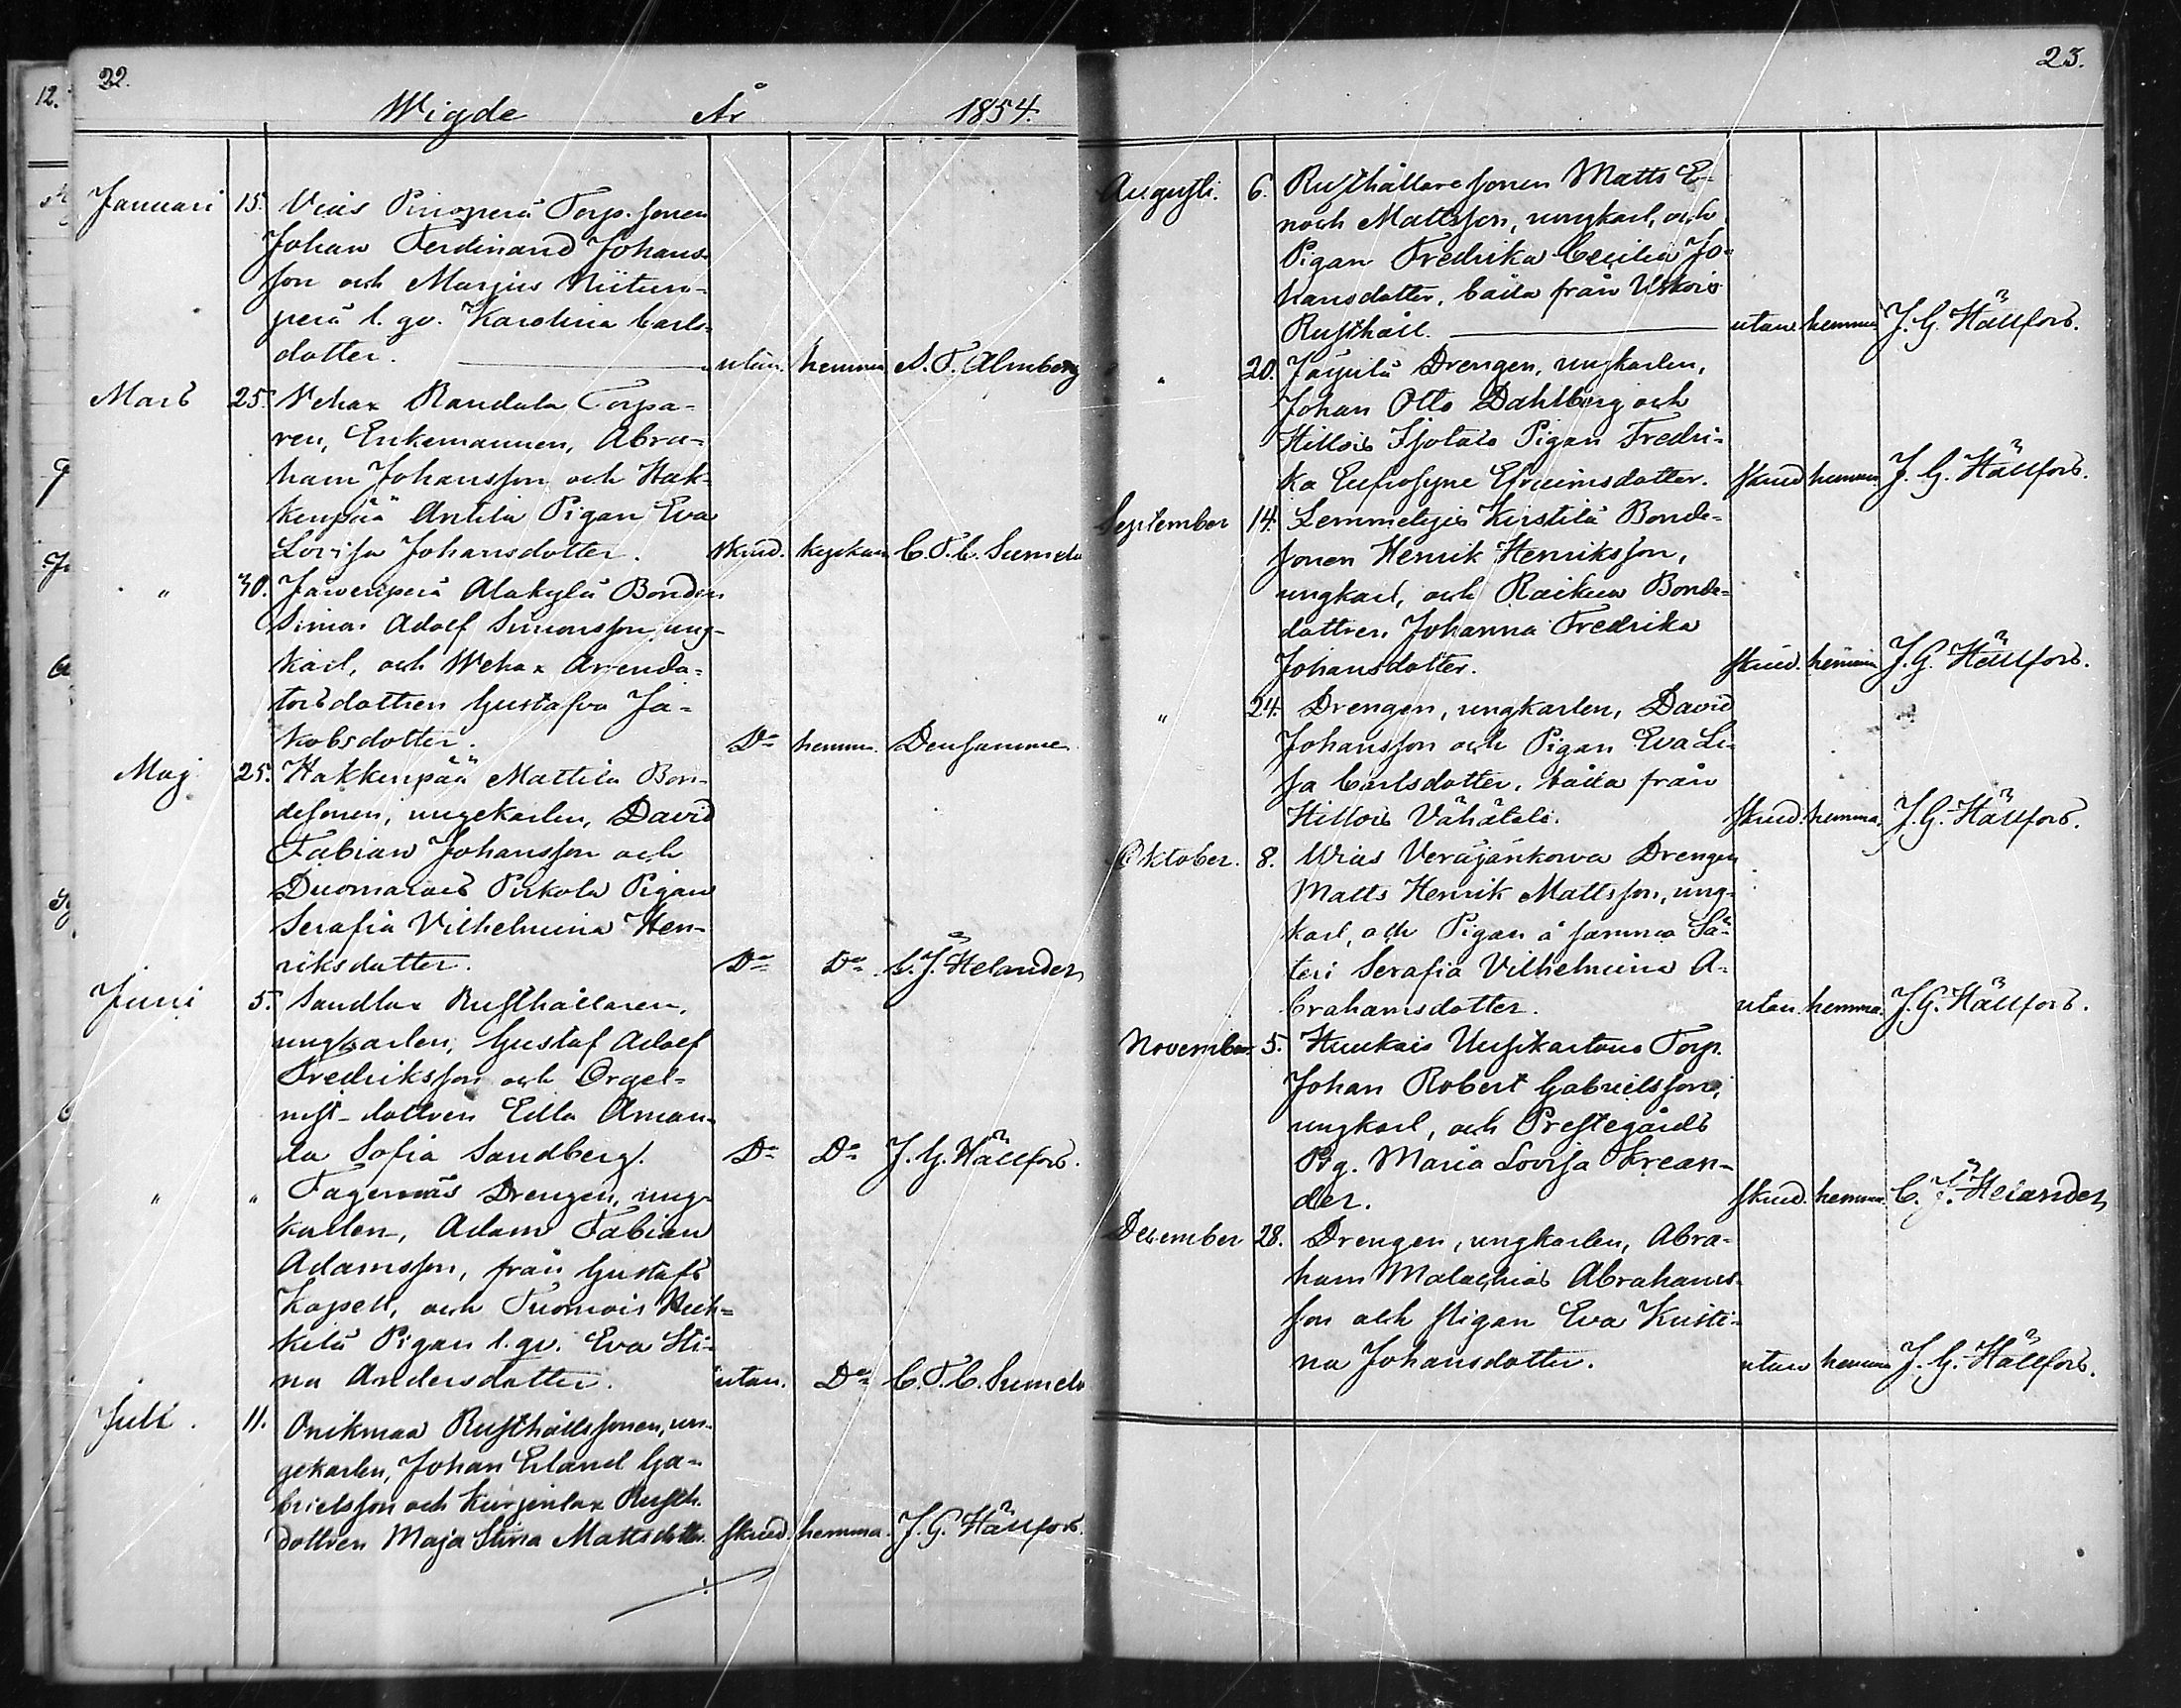 22.
Wigde År 1854.
Januari 15. Viais Torp. sonen
Johan Ferdinand Johans-
son och Marjus Niitun-
perä l. qv. Karolina Carls-
dotter. utan. hemma A. F. Almberg
Mars 25. Vehax Randula Torpa-
ren, Enkemannen, Abra-
ham Johansson och Hak-
kenpää Antila Pigan Eva
Lovisa Johansdotter. skud. C. F. C. Sumeli
" 30. Järvenperä Alakylä Bonden
Simon Adolf Simonsson, ung-
karl, och Wehax Arenda-
torsdottren Gustafva Ja-
kobsdotter. Do hemma. Densamme
Maj 25. Hakkenpää Mattila Bon-
desonen, ungekarlen, David
Fabian Johansson och
Pirkola Pigan
Serafia Vilhelmina Hen-
riksdotter. Do Do C. J. Helander
Juni 5. Sandlax Rusthållaren,
ungkarlen, Gustaf Adolf
Fredriksson och Orgel-
nist-dottren Edla Aman-
da Sofia Sandberg. Do Do J. G. Hällfors.
" " Tagernäs Drengen, ung-
karlen, Adam Fabian
Adamsson, från Gustafs
Kapell, och Tuomois Heik-
kilä Pigan l. qv. Eva Sti-
na Andersdotter. utan. Do C. F. C. Sumeli
Juli. 11. Onikmaa Rusthållssonen, un-
gekarlen, Johan Erland Ga-
brielsson och Kurjenlax Rusth.
dottren Maja Stina Mattsdotter. skud. hemma. J. G. Hällfors.
23.
Augusti. 6. Rusthållaresonen Matts E-
noch Mattsson, ungkarl, och
Pigan Fredrika Cecilia Jo-
hansdotter, båda från Uskois
Rusthåll. utan hemma J. G. Hällfors.
" 20. Jäypilä Drengen, ungkarlen,
Johan Otto Dahlberg och
Hillois Isotalo Pigan Fredri-
ka Eufrosyne Efraimsdotter. skud hemma. J. G. Hällfors.
September 14. Lemmetyis Kirstilä Bonde-
sonen Henrik Henriksson,
ungkarl, och Raikua Bonde-
dottren Johanna Fredrika
Johansdotter. skud. hemma J. G. Hällfors.
" 24. Drengen, ungkarlen, David
Johansson och Pigan Eva Li-
sa Carlsdotter, båda från
Hillois Vähätalo. skud. hemma. J. G. Hällfors.
Oktober. 8. Wias Veräjänkorva Drengen
Matts Henrik Mattsson, ung-
karl, och Pigan å samma Sä-
teri Serafia Vilhelmina A-
brahamsdotter. utan. hemma. J. G. Hällfors.
November 5. Hunkais Uusikartano Torp.
Johan Robert Gabrielsson,
ungkarl, och Prestegårds
Pig. Maria Lovisa Krean-
der. skud. hemma. C. J. Helander
December 28. Drengen, ungkarlen, Abra-
ham Malachias Abrahams-
son och pigan Eva Kristi-
na Johansdotter. utan hemma J. G. Hällfors.